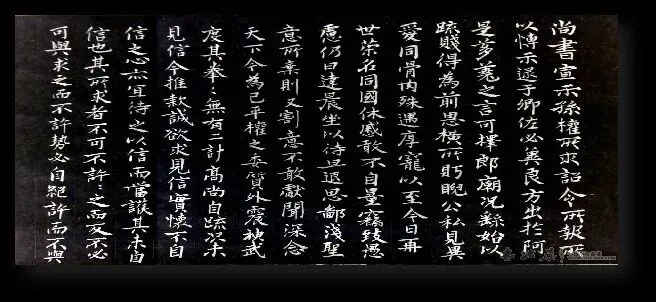 尚書宣示孫權所求詔令所報所
以博示逮于卿佐必冀良方出於阿
是芻蕘之言可擇郎廟況繇始以
疏賤得為前恩橫所盱睨公私見異
愛同骨肉殊遇厚寵以至今日再
世榮名同國休慼敢不自量竊致愚
慮仍日達晨坐以待旦退思鄙淺聖
意所棄則又割意不敢獻聞深念
天下今為已平權之委質外震神武
度其拳〻無有二計高尚自疏況未
見信今推款誠欲求見信實懷不自
信之心亦宜待之以信而當護其未自
信也其所求者不可不許〻之而反不必
可與求之而不許勢必自絕許而不與